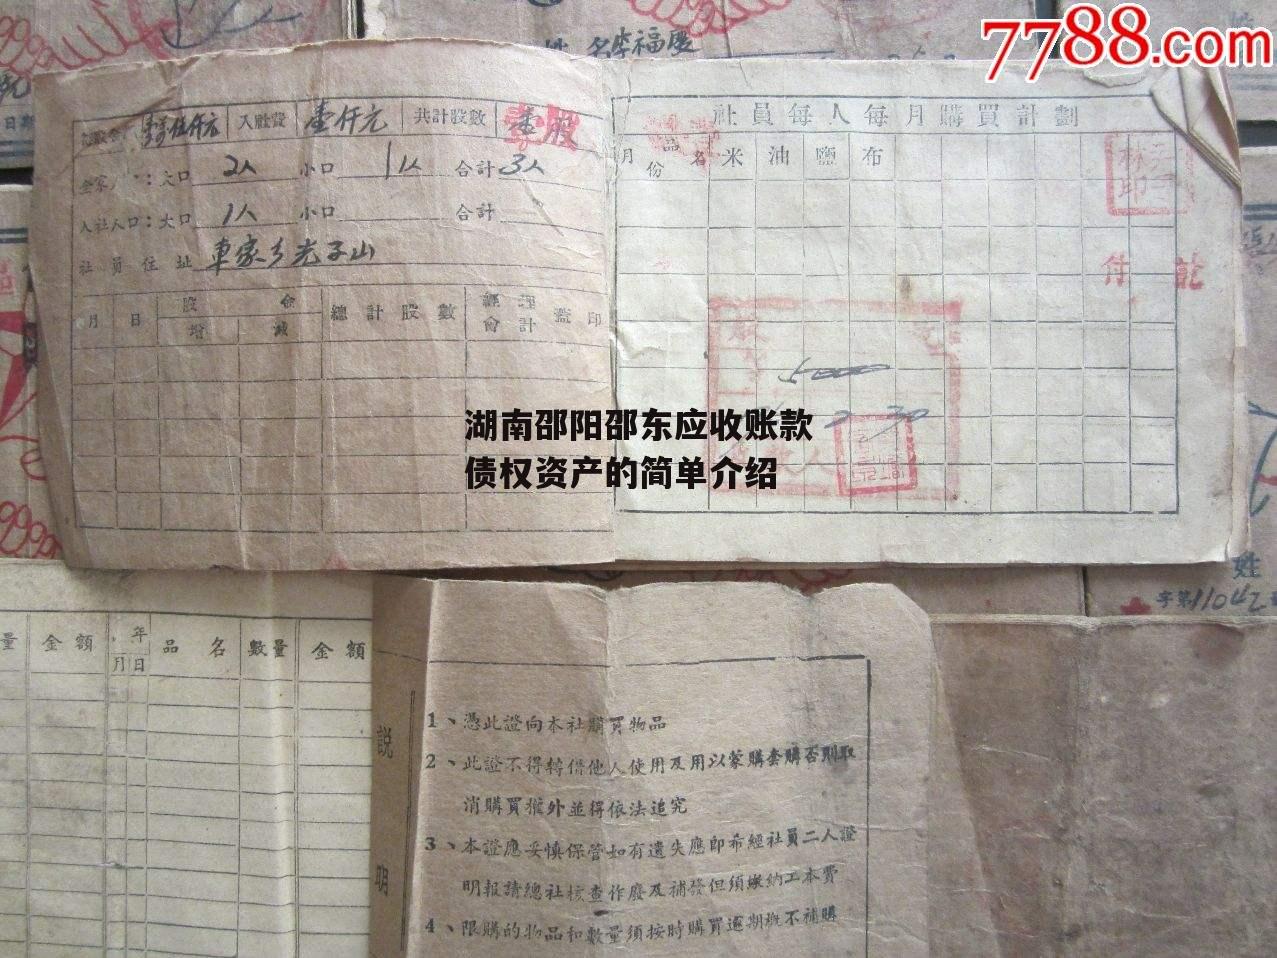 7788.com
姓 名 李福慶
入社費 壹仟元 共計股數 壹股
大口 2人 小口 1人 合計 3人
入社人口：大口 1人 小口 合計
社員住址 車家乡光子山
月 日 股金 總計股數 經理 蓋印
增 減 會計
社員每人每月購買計劃
月份 品名 米 油 鹽 布
付 訖
5000
湖南邵阳邵东应收账款
债权资产的简单介绍
姓
字第11042
量 金額 年 品名 數量 金額
月 日
說明
1、憑此證向本社購買物品
2、此證不得轉借他人使用及用以蒙購套購否則取
消購買權外並得依法追究
3、本證應妥慎保管如有遺失應即希經社員二人證
明報請總社核查作廢及補發但須繳納工本費
4、限購的物品和數量須按時購買逾期概不補購